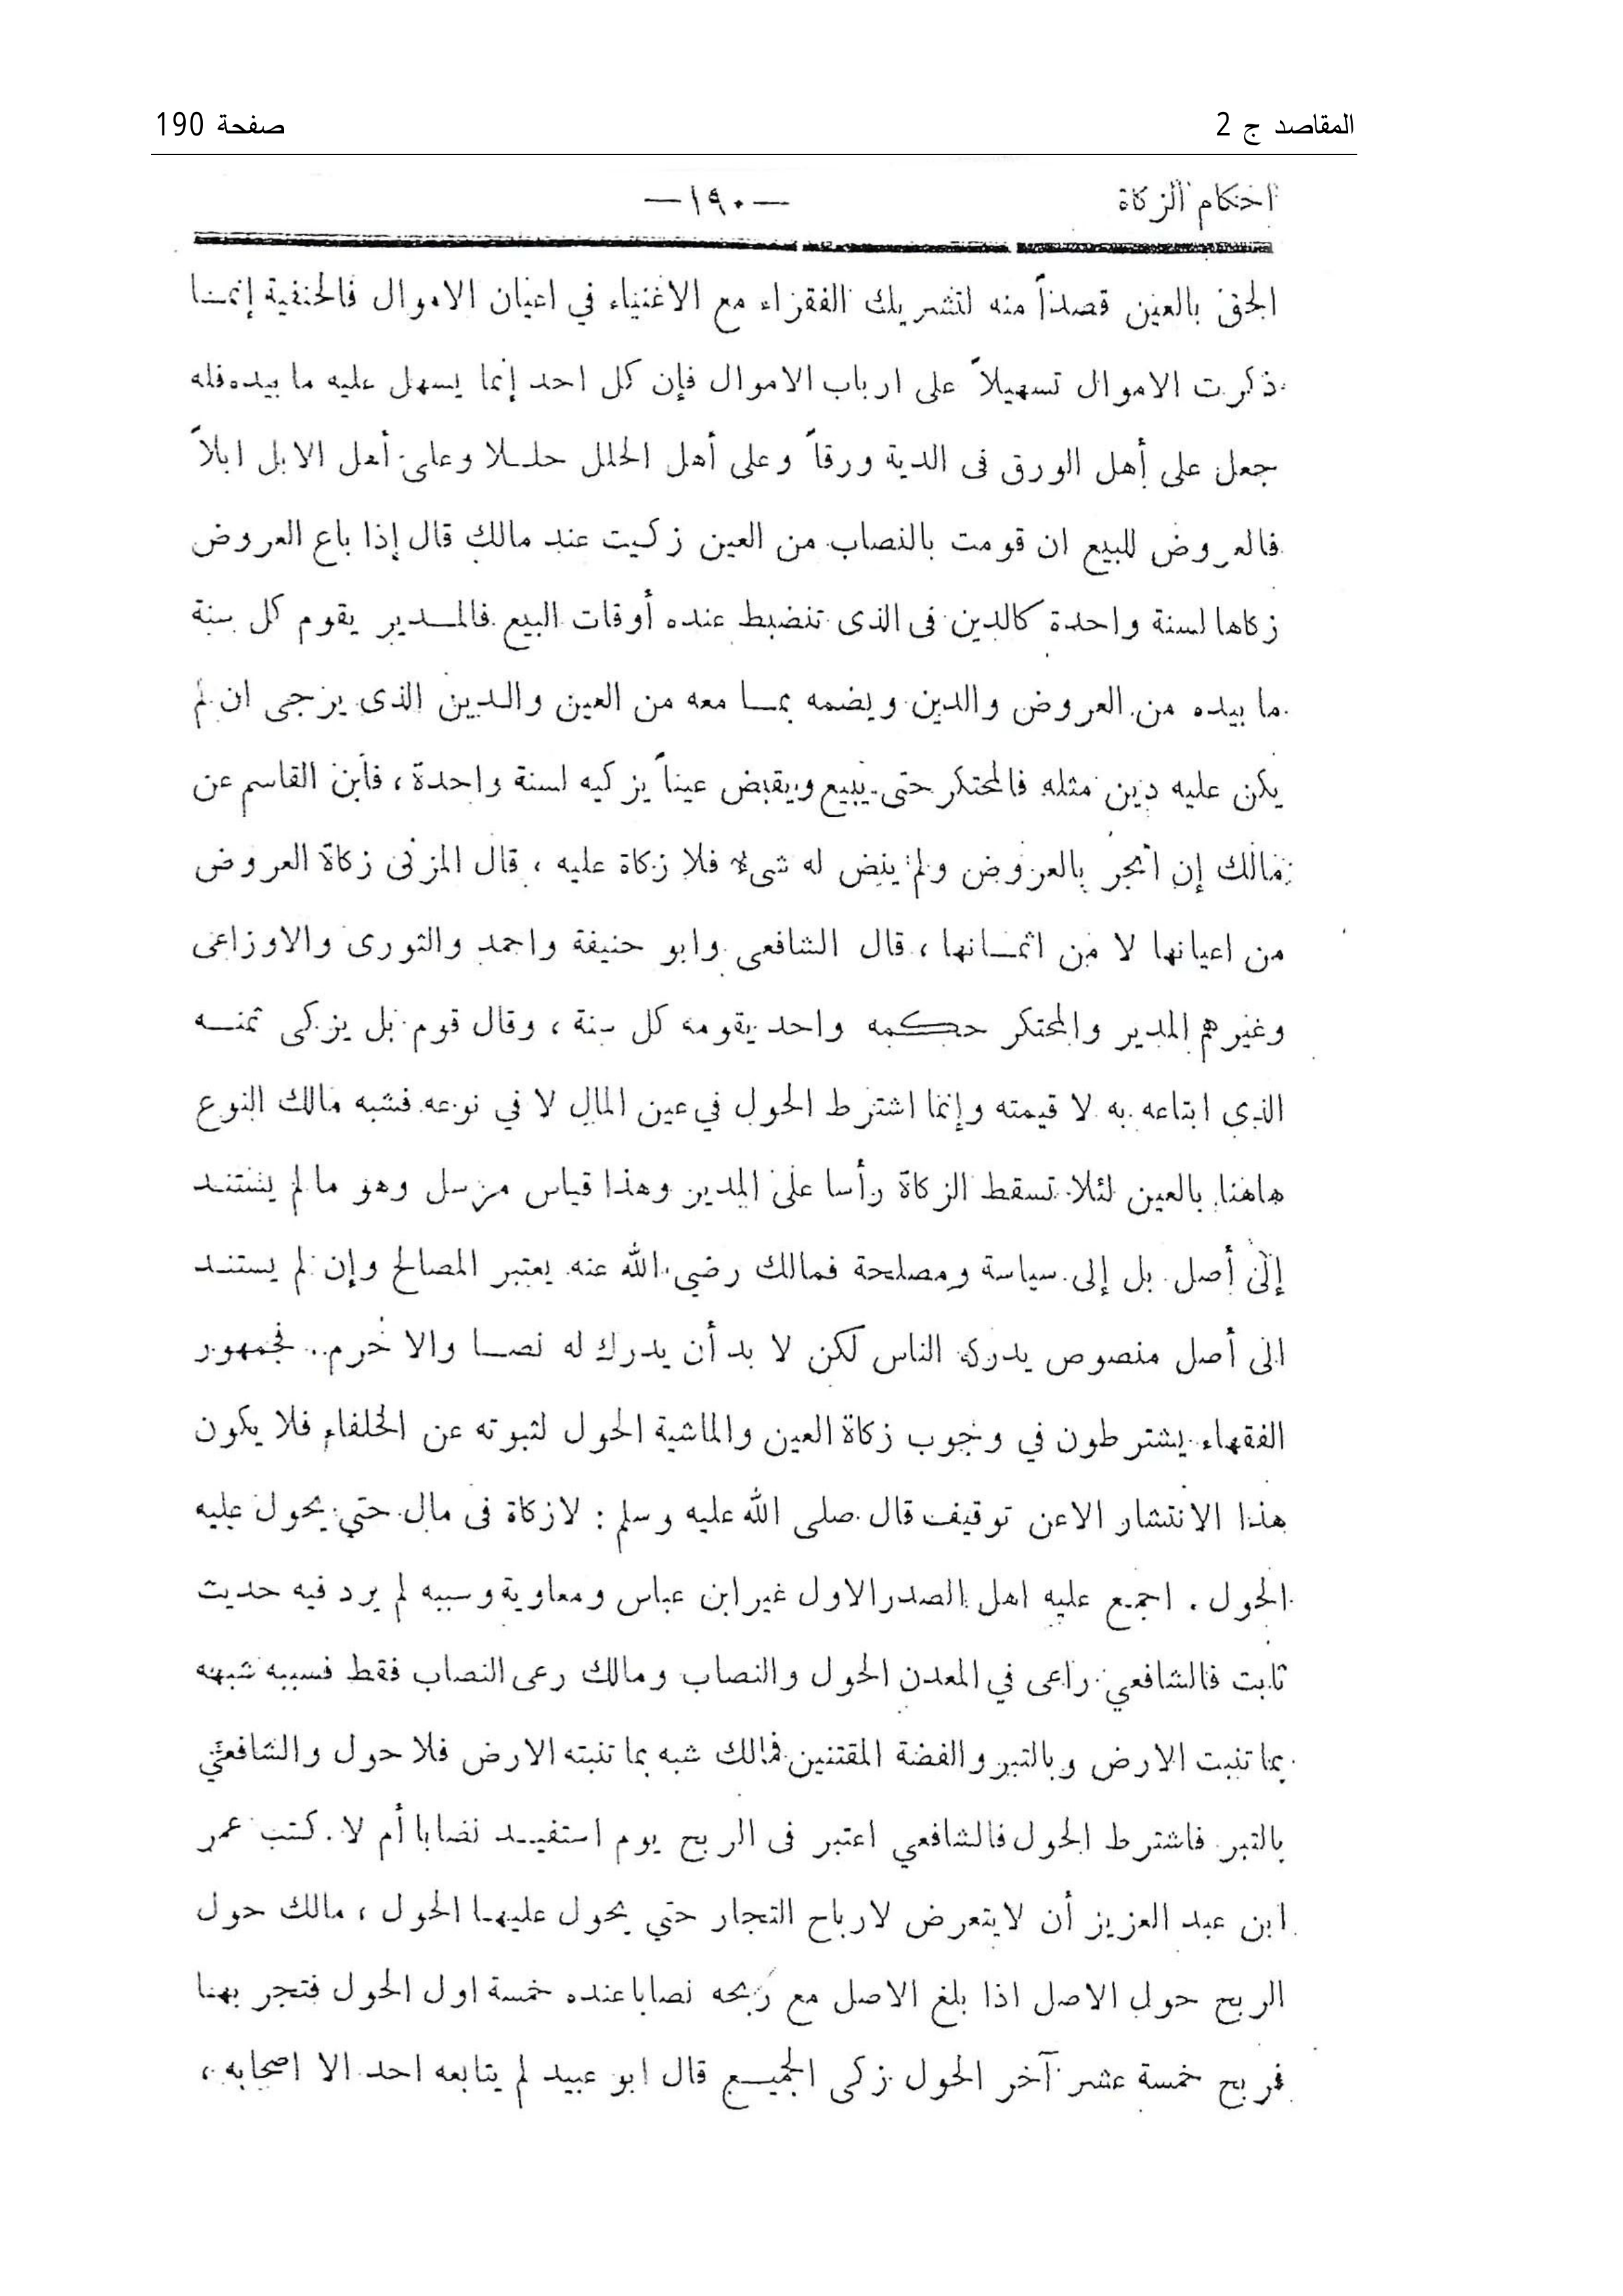 المقاصد ج 2
صفحة 190
احكام الزكاة
—١٩٠—
الحق بالعين قصداً منه لتشريك الفقراء مع الاغنياء في اعيان الاموال فالحنفية إنمـا
ذكرت الاموال تسهيلاً على ارباب الاموال فإن كل احد إنما يسهل عليه ما بيده فله
جعل على أهل الورق فى الدية ورقاً وعلى أهل الحلل حلـلا وعلى أهل الابل ابلاً
فالعروض للبيع ان قومت بالنصاب من العين زكيت عند مالك قال إذا باع العروض
زكاها لسنة واحدة كالدين فى الذى تنضبط عنده أوقات البيع فالمـدير يقوم كل سنة
ما بيده من العروض والدين ويضمه بمـا معه من العين والدين الذى يرجى ان لم
يكن عليه دين مثله فالمحتكر حتى يبيع ويقبض عيناً يزكيه لسنة واحدة ، فابن القاسم عن
مالك إن اتجر بالعروض ولم ينض له شىء فلا زكاة عليه ، قال المزنى زكاة العروض
من اعيانها لا من اثمـانها ، قال الشافعى وابو حنيفة واحمد والثورى والاوزاعى
وغيرهم المدير والمحتكر حكمه واحد يقومه كل سنة ، وقال قوم بل يزكى ثمنـه
الذى ابتاعه به لا قيمته وإنما اشترط الحول في عين المال لا في نوعه فشبه مالك النوع
هاهنا بالعين لئلا تسقط الزكاة رأسا على المدير وهذا قياس مرسل وهو ما لم يستنـد
إلى أصل بل إلى سياسة ومصلحة فمالك رضي الله عنه يعتبر المصالح وإن لم يستنـد
الى أصل منصوص يدركه الناس لكن لا بد أن يدرك له نصـا والا خرم.. فجمهور
الفقهاء يشترطون في وجوب زكاة العين والماشية الحول لثبوته عن الخلفاء فلا يكون
هذا الانتشار الاعن توقيف قال صلى الله عليه وسلم : لازكاة فى مال حتي يحول عليه
الحول . اجمع عليه اهل الصدر الاول غير ابن عباس ومعاوية وسببه لم يرد فيه حديث
ثابت فالشافعي راعى في المعدن الحول والنصاب ومالك رعى النصاب فقط فسببه شبهه
بما تنبت الارض وبالتبر والفضة المقتنين فمالك شبه بما تنبته الارض فلا حول والشافعي
بالتبر فاشترط الحول فالشافعي اعتبر فى الربح يوم استفيـد نصابا أم لا . كتب عمر
ابن عبد العزيز أن لايتعرض لارباح التجار حتي يحول عليهـا الحول ، مالك حول
الربح حول الاصل اذا بلغ الاصل مع ربحه نصاباعنده خمسة اول الحول فتجر بهـا
فربح خمسة عشر آخر الحول زكى الجميـع قال ابو عبيد لم يتابعه احد الا اصحابه ،